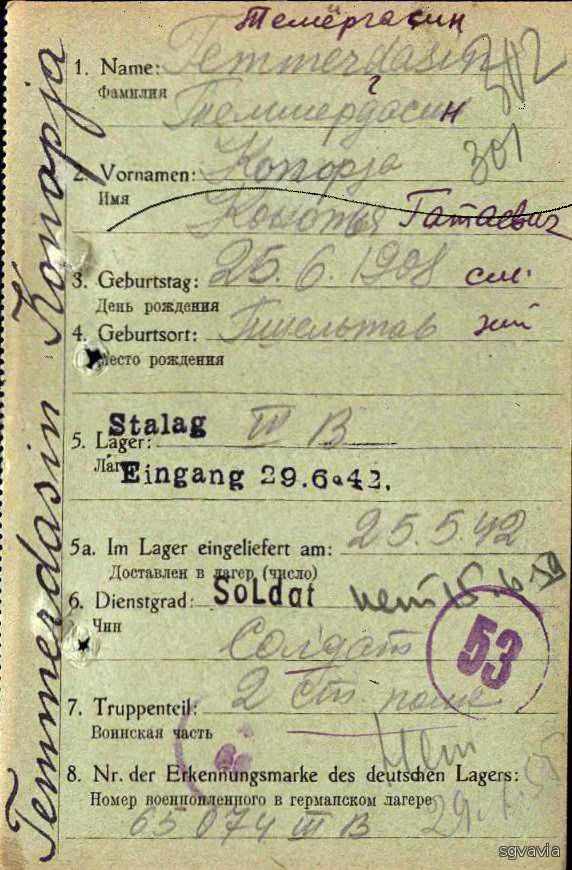 Темёргасин
1. Name: Temmerdasin
302
Фамилия
Теммердасин
г
2. Vornamen: Konopja
301
Имя
Гатаевич
3. Geburtstag: 25.6.1908
см.
День рождения
4. Geburtsort:
Место рождения
Stalag
5. Lager: III B
Лаг
Eingang 29.6.42.
5a. Im Lager eingeliefert am: 25.5.42
Доставлен в лагер (число)
6. Dienstgrad: SoLdat
Чин
Солдат
53
7. Truppenteil: 2
Воинская часть
Нет
8. Nr. der Erkennungsmarke des deutschen Lagers:
Номер военнопленного в германском лагере
65 074 III B
Temmerdasin Konopja
sgvavia